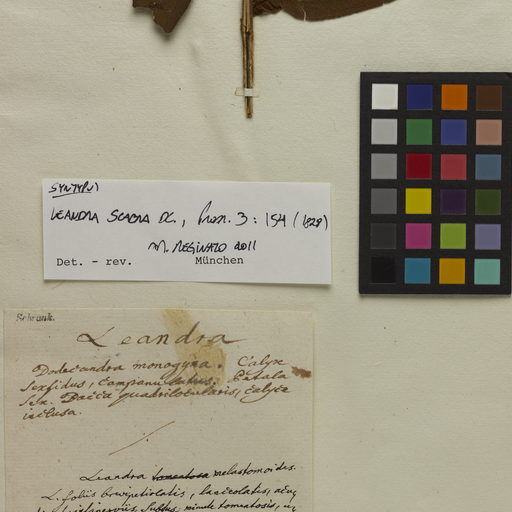 SYNTYPUS
LEANDRA SCABRA DC., Prom. 3: 154 (1828)
M. REGINATO 2011
Det. - rev. München
Schrank.
Leandra
Dodecandra monogyna. Calyx
sexfidus, campanulatus. Petala
sex. Bacca quadrilocularis, calyce
inclusa.
Leandra tomentosa melastomoides.
L. foliis brevipetiolatis, lanceolatis,
subtus, tomentosis,